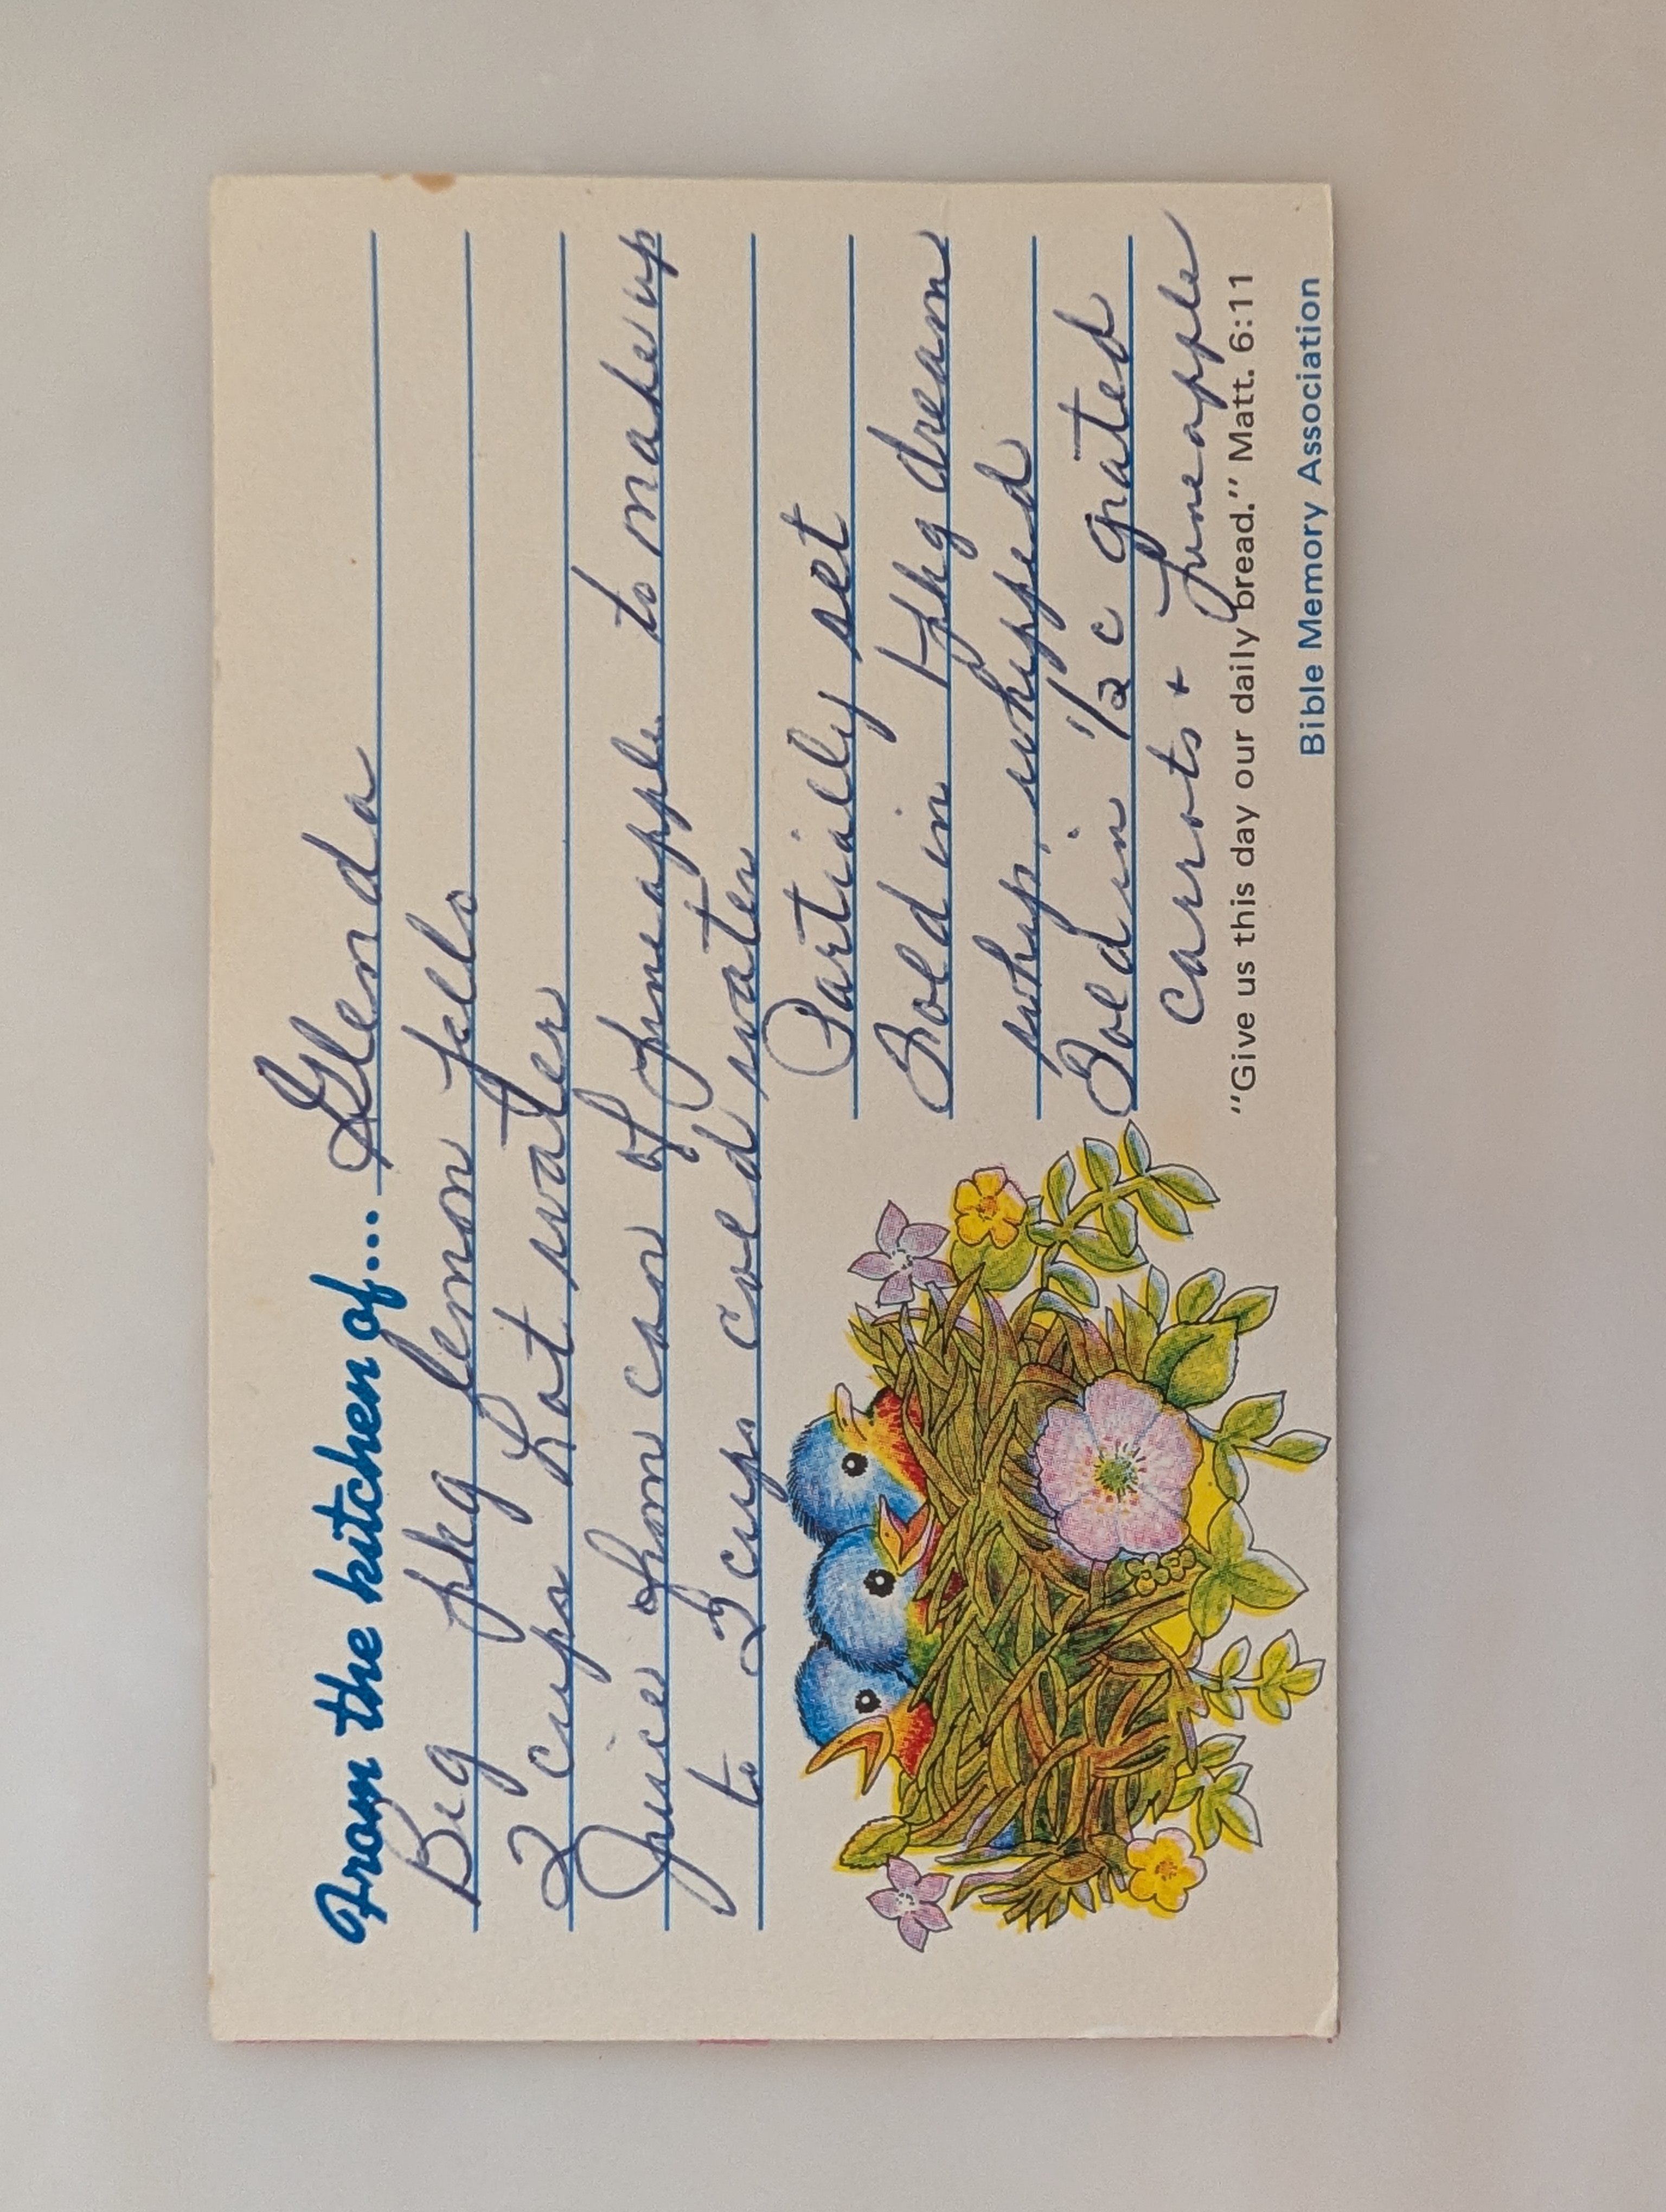 From the kitchen of... Glenda
Big pkg lemon jello
2 cups hot water
Juice from can of pineapple to make up
to 2 cups cold water
Partially set
Fold in 1 pkg dream
whip whipped
Fold in 1/2 c grated
carrots + pineapple
"Give us this day our daily bread." Matt. 6:11
Bible Memory Association